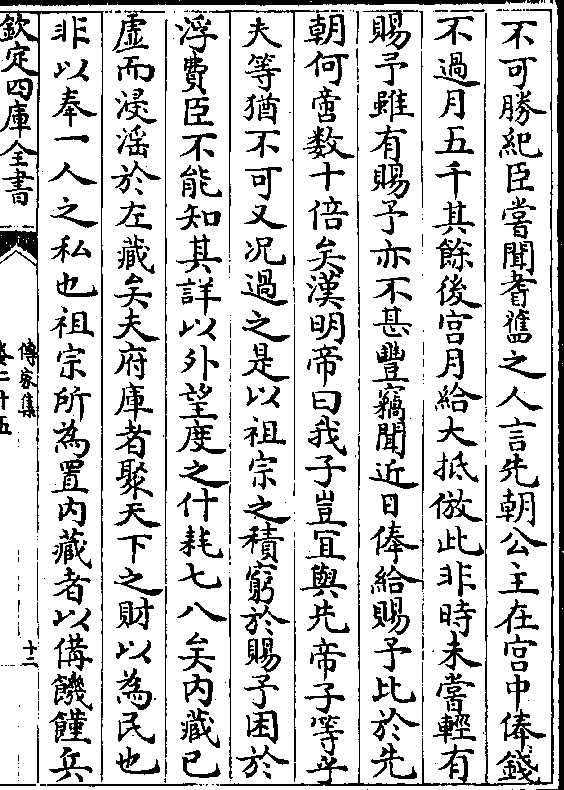 不可勝紀臣嘗聞耆舊之人言先朝公主在宫中俸錢
不過月五千其餘後宫月給大抵倣此非時未嘗輕有
賜予雖有賜予亦不甚豐竊聞近日俸給賜予比於先
朝何啻数十倍矣漢明帝曰我子豈宜與先帝子等乎
夫等猶不可又况過之是以祖宗之積窮於賜予困於
浮費臣不能知其詳以外望度之什耗七八矣内藏已
虚而浸滛於左藏矣夫府庫者聚天下之財以為民也
非以奉一人之私也祖宗所為置内藏者以備饑饉兵
欽定四庫全書
傳家集
卷二十五
十二